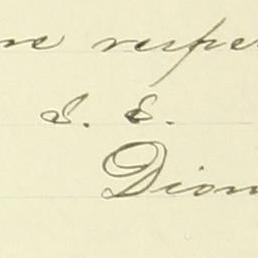 me respe
S. E.
Dion